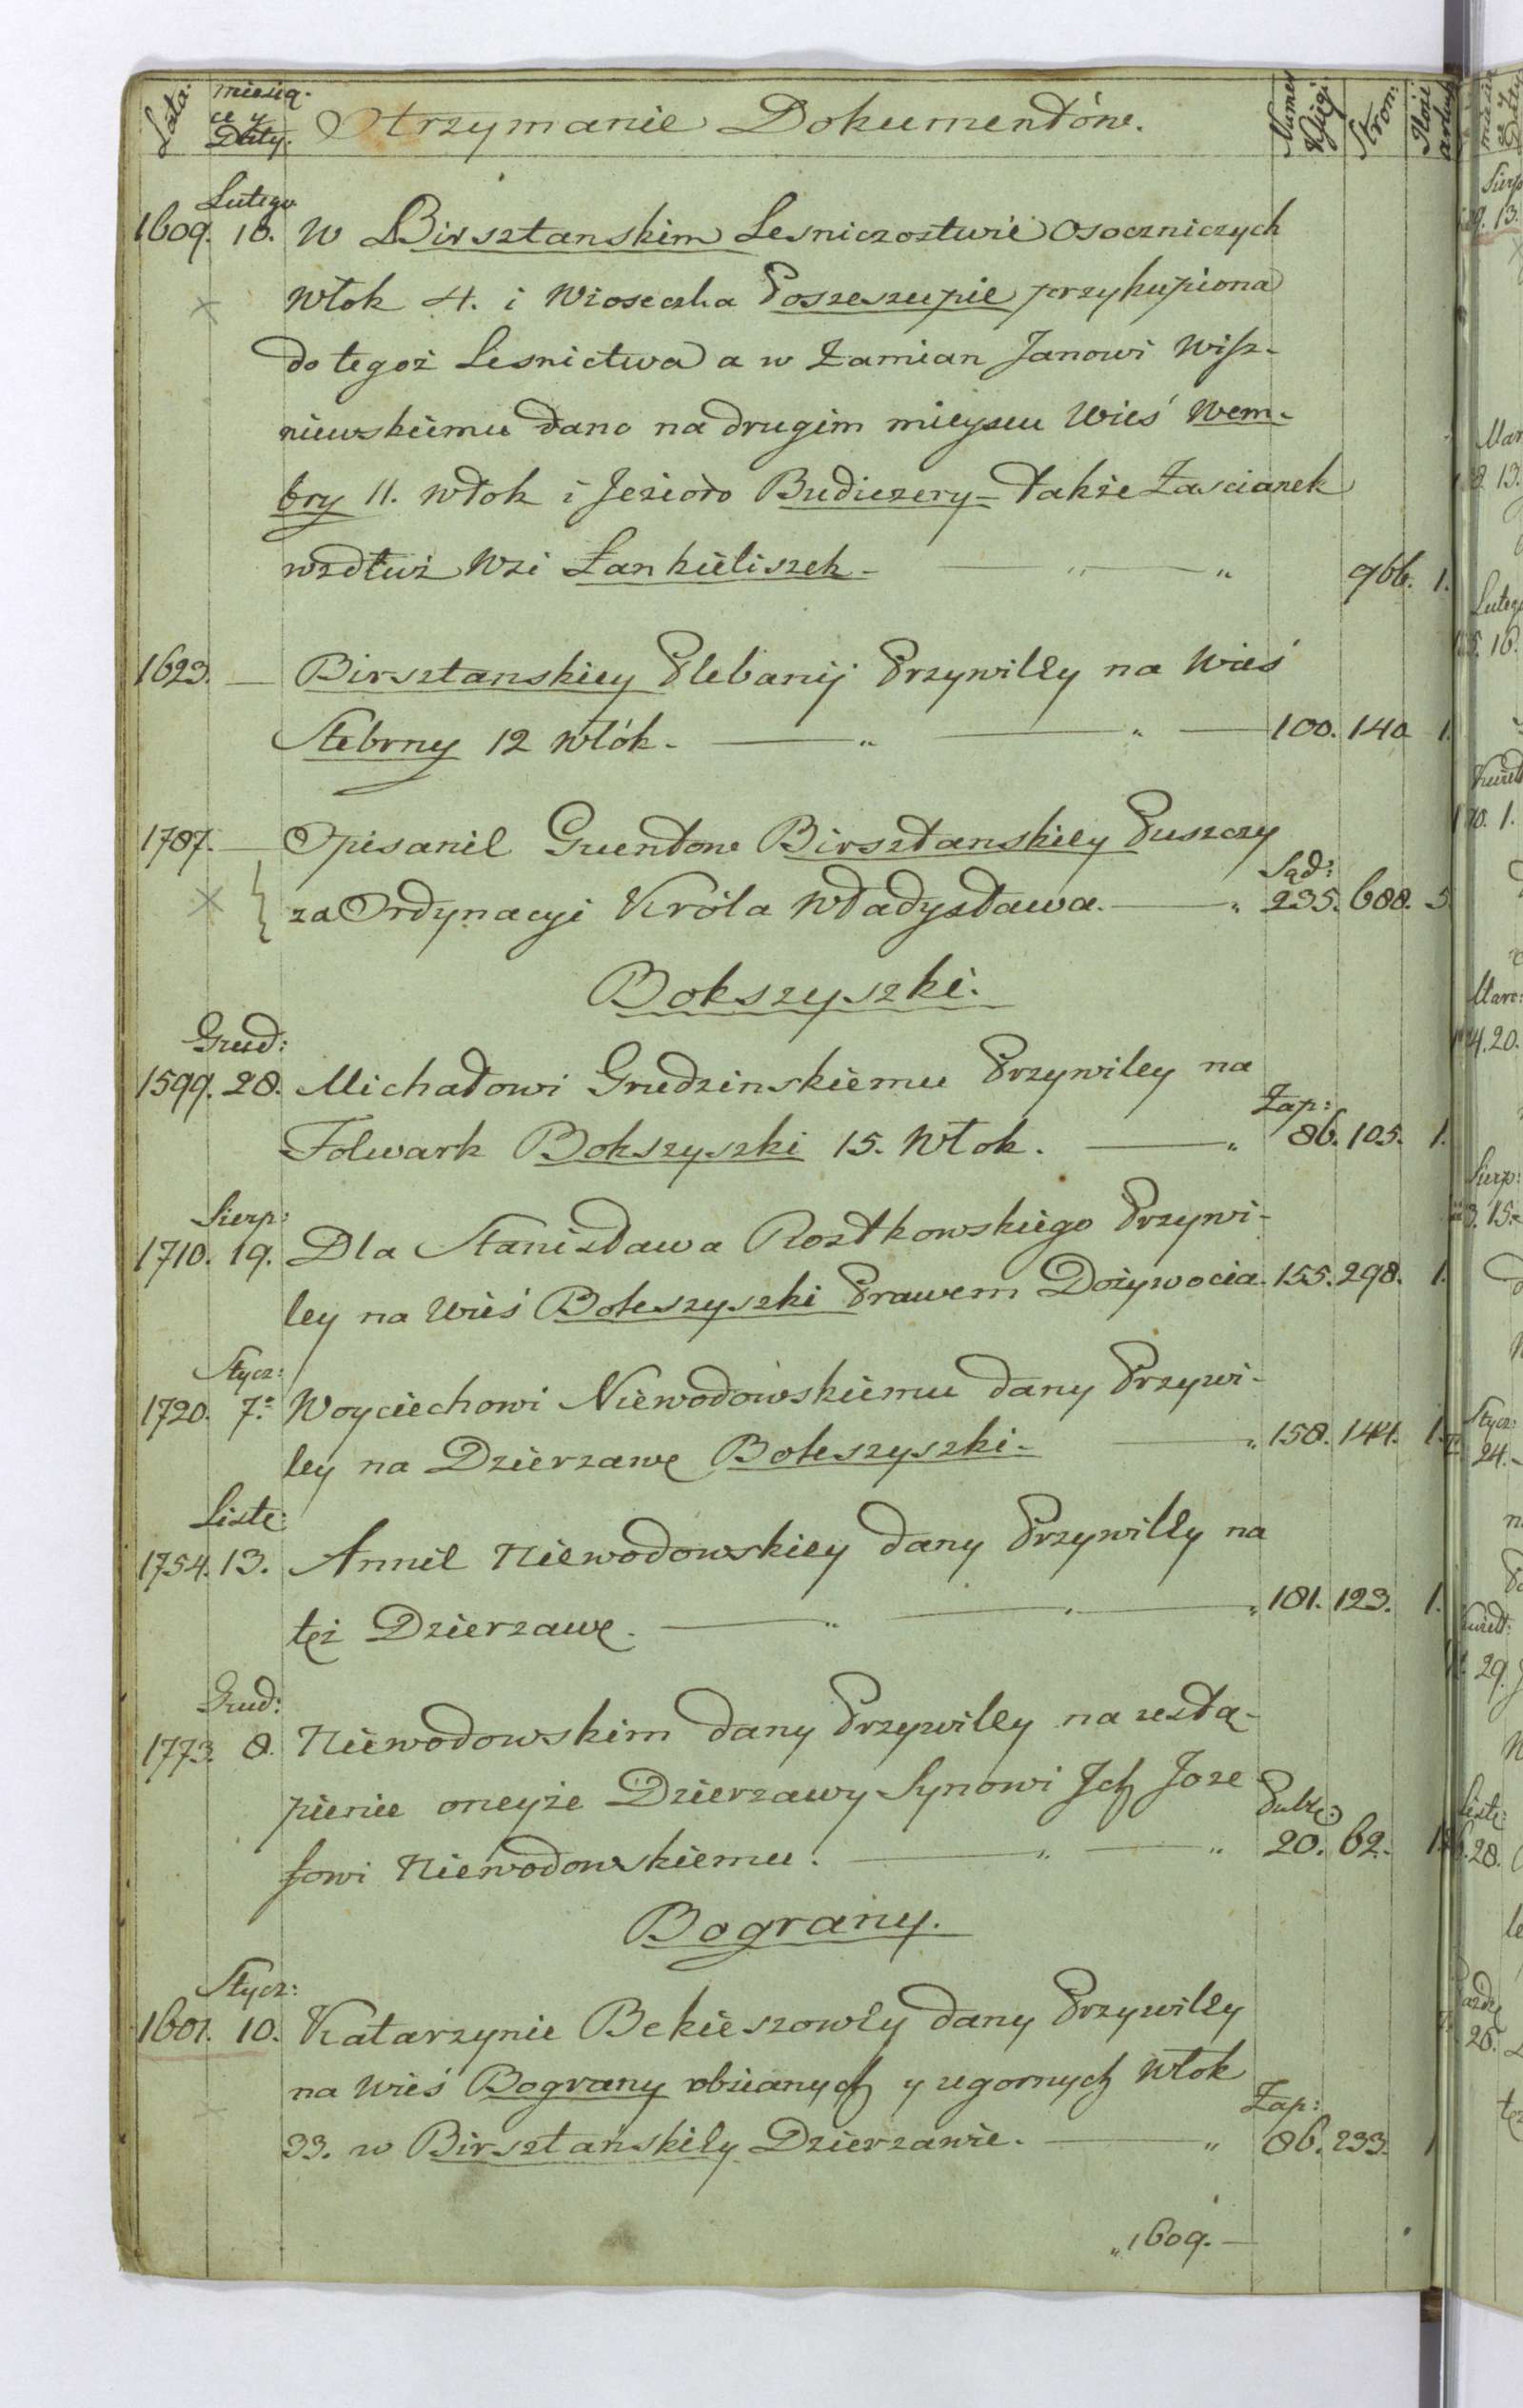 Lata. miesią- ce y Daty. Otrzymanie Dokumentów. Numer Xięgi. Stron: Ilość arkusz
Lutego
1609. 16. W Birsztanskim Lesniczostwie Osoczniczych
Włok 4. i Wioseczka Poszeszupie przykupiona
do tegoż Lesnictwa a w Zamian Janowi Wisz-
niewskiemu dano na drugim mieyscu Wieś Wem-
bry 11. włok i Jezioro Budiezery - także Zascianek
wzdłuż Wsi Łankieliszek - 966. 1.
1623. — Birsztanskiey Plebanij Przywiley na Wieś
Stebrny 12 Włók. 100. 140 1.
1787. — Opisanie Gruntow Birsztanskiey Puszczy
Sąd:
za Ordynacyi Króla Władysława. 235. 688. 5
Bokszyszki.
Grud:
1599. 28. Michałowi Grudzinskiemu Przywiley na
Zap:
Folwark Bokszyszki 15. Włok. 86. 105. 1.
Sierp:
1710. 19. Dla Stanisława Rostkowskiego Przywi-
ley na Wieś Boteszyszki Prawem Dożywocia. 155. 298. 1.
Stycz:
1720. 7. Woyciechowi Niewodowskiemu dany Przywi-
ley na Dzierzawę Boteszyszki - 158. 144. 1.
Liste:
1754. 13. Annie Niewodowskiey dany Przywiley na
też Dzierzawę. 181. 123. 1.
Grud:
1773. 8. Niewodowskim dany Przywiley na ustą-
pienie oneyże Dzierzawy Synowi Ich Joze
Publ:
fowi Niewodowskiemu. 20. 62. 1
Bograny.
Stycz:
1601. 10. Katarzynie Bekieszowey dany Przywiley
na Wieś Bograny osianych y ugornych Włok
Zap:
33. w Birsztanskiey Dzierzawie. 86. 233. 1
1609. —